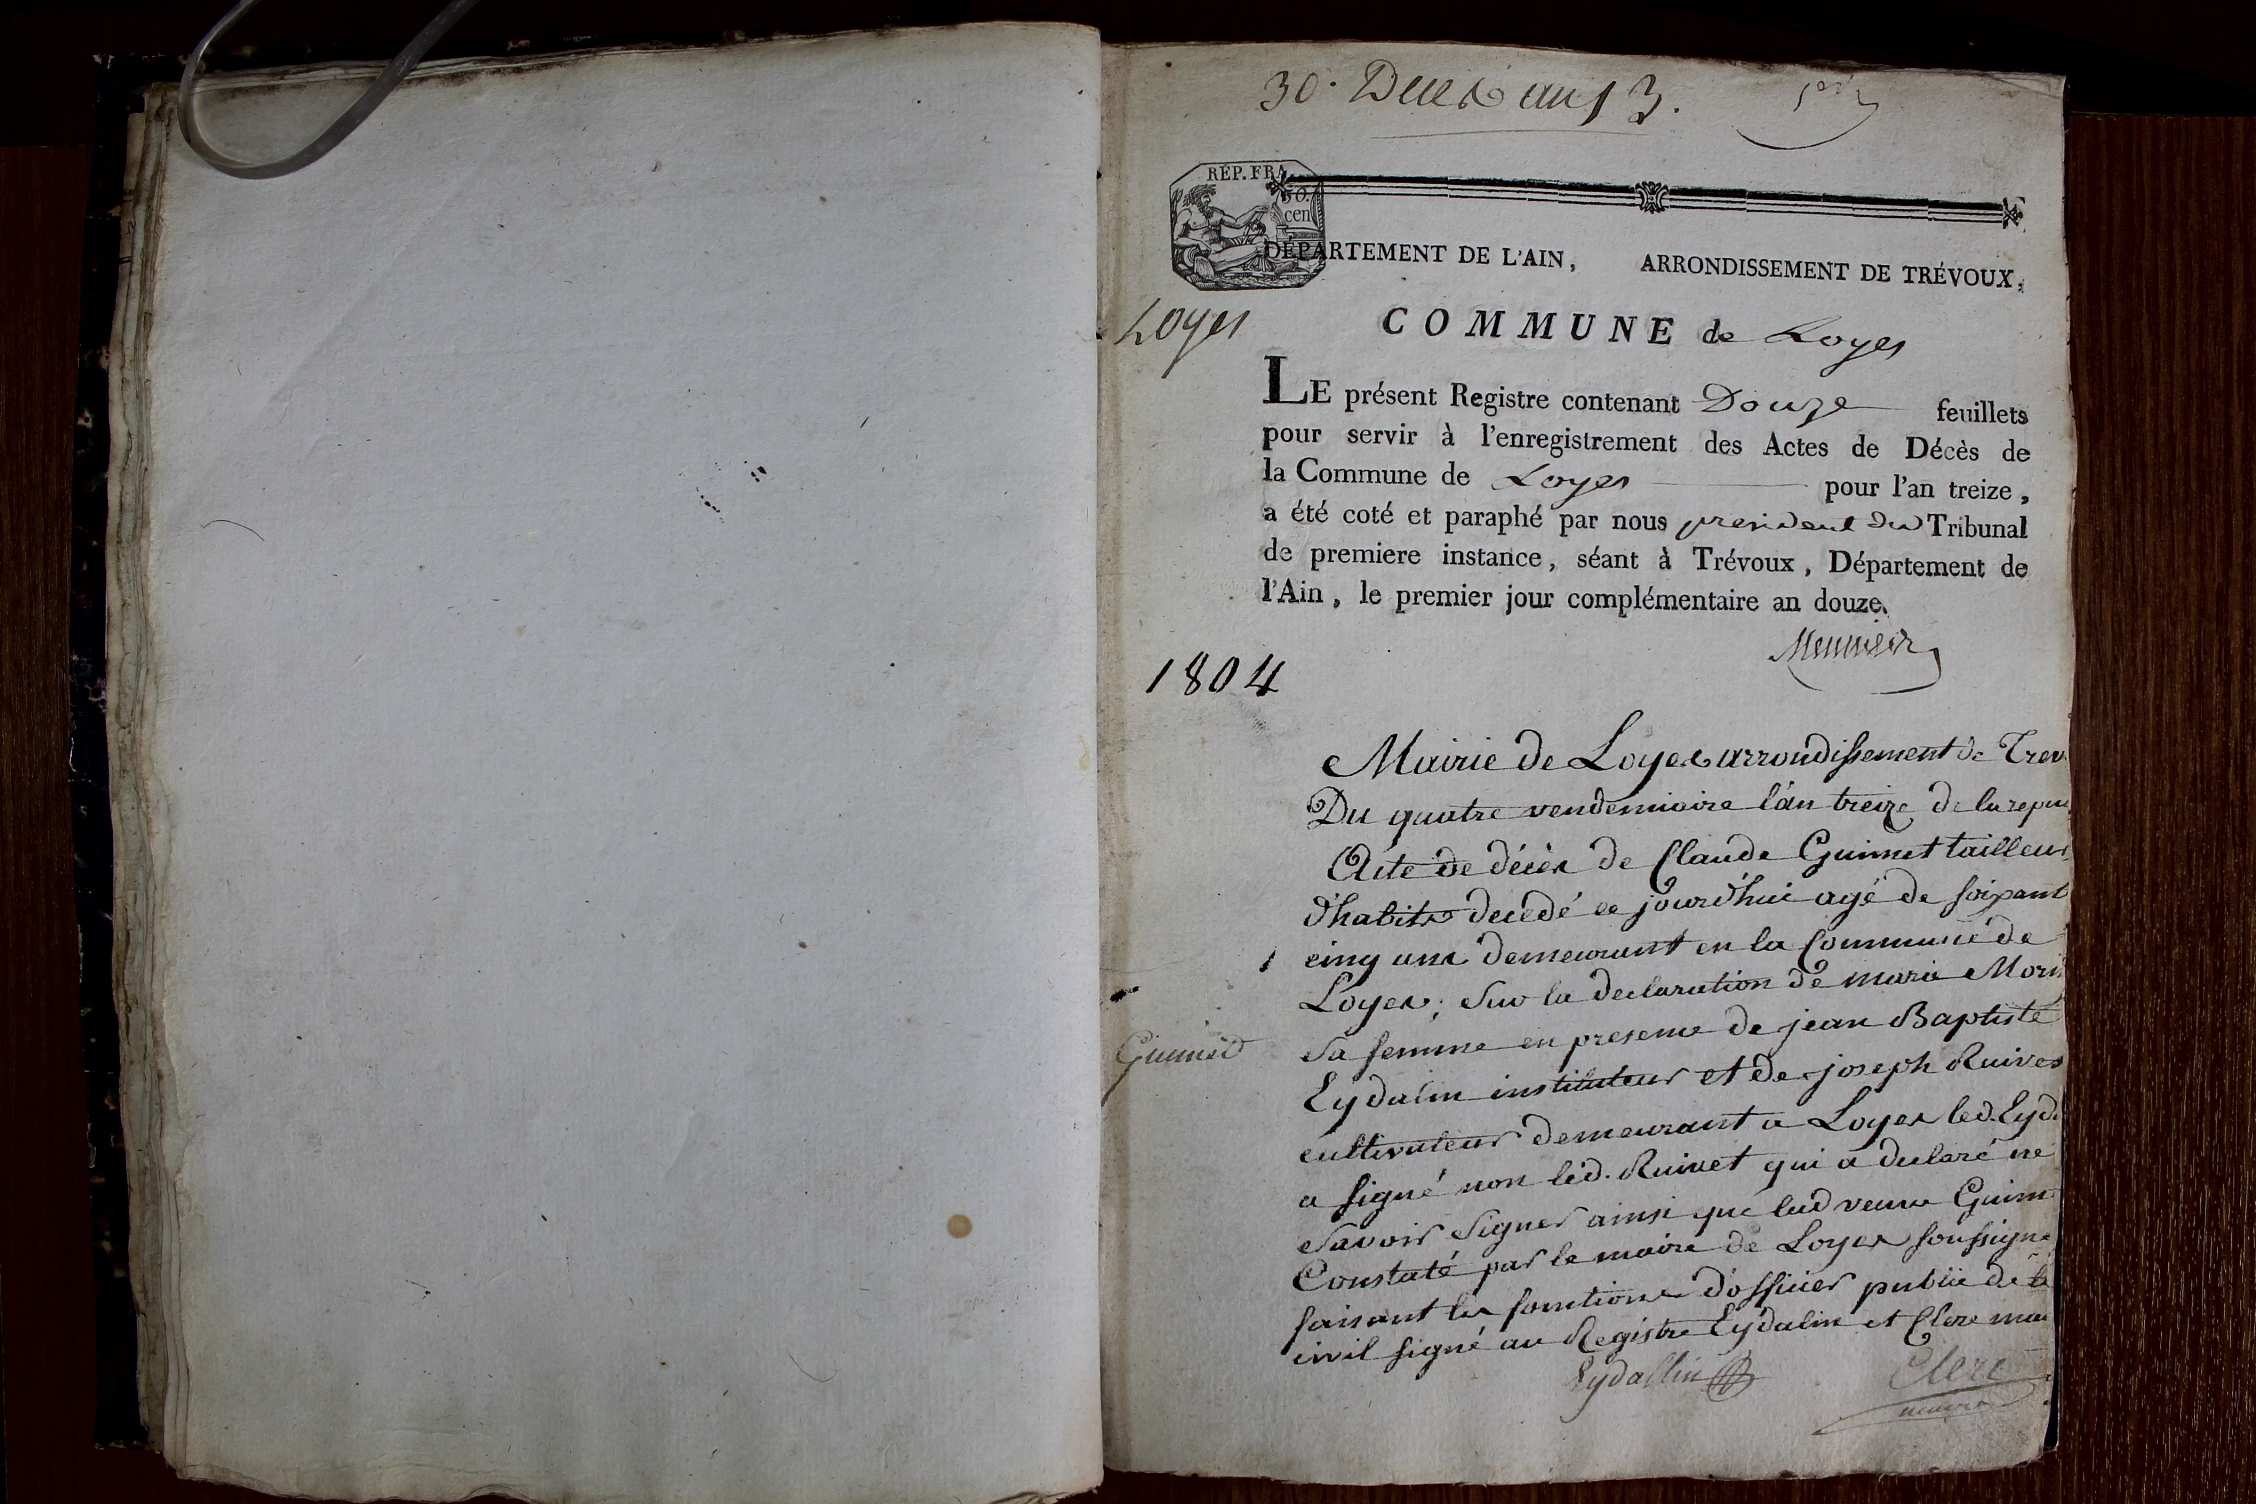 30. Decès an 13.
1er
RÉP. FRA.
50.
cen
DÉPARTEMENT DE L'AIN, ARRONDISSEMENT DE TRÉVOUX,
Loyes
COMMUNE de Loyes
LE présent Registre contenant Douze feuillets
pour servir à l'enregistrement des Actes de Décès de
la Commune de Loyes pour l'an treize,
a été coté et paraphé par nous president du Tribunal
de premiere instance, séant à Trévoux, Département de
l'Ain, le premier jour complémentaire an douze.
1804
Mairie de Loyes arrondissement de Trev
Du quatre vendemiaire l'an treize de la repu
Acte de décès de Claude Guinnet tailleur
d'habits decedé ce jourd'hui agé de soixant
1
cinq ans demeurant en la Commune de
Loyes; Sur la declaration de marie Morin
Guinnet
Sa femme en presence de jean Baptiste
Eydalin instituteur et de joseph Ruivet
cultivateur demeurant a Loyes led. Eyd.
a signé non led. Ruivet qui a declaré ne
Savoir Signer ainsi que lad veuve Guinn
Constaté par le maire de Loyes soussigné
faisant les fonctions d'officier public de
civil signé au Registre Eydalin et Clerc mai
Eydallin
Clerc
maire